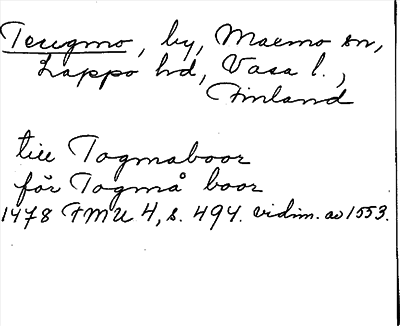 Teugmo, by, Maemo sn,
Lappo hd, Vasa l.,
Finland
till Togmaboor
för Togmå boor
1478 FMU 4, s. 494. vidim. av 1553.